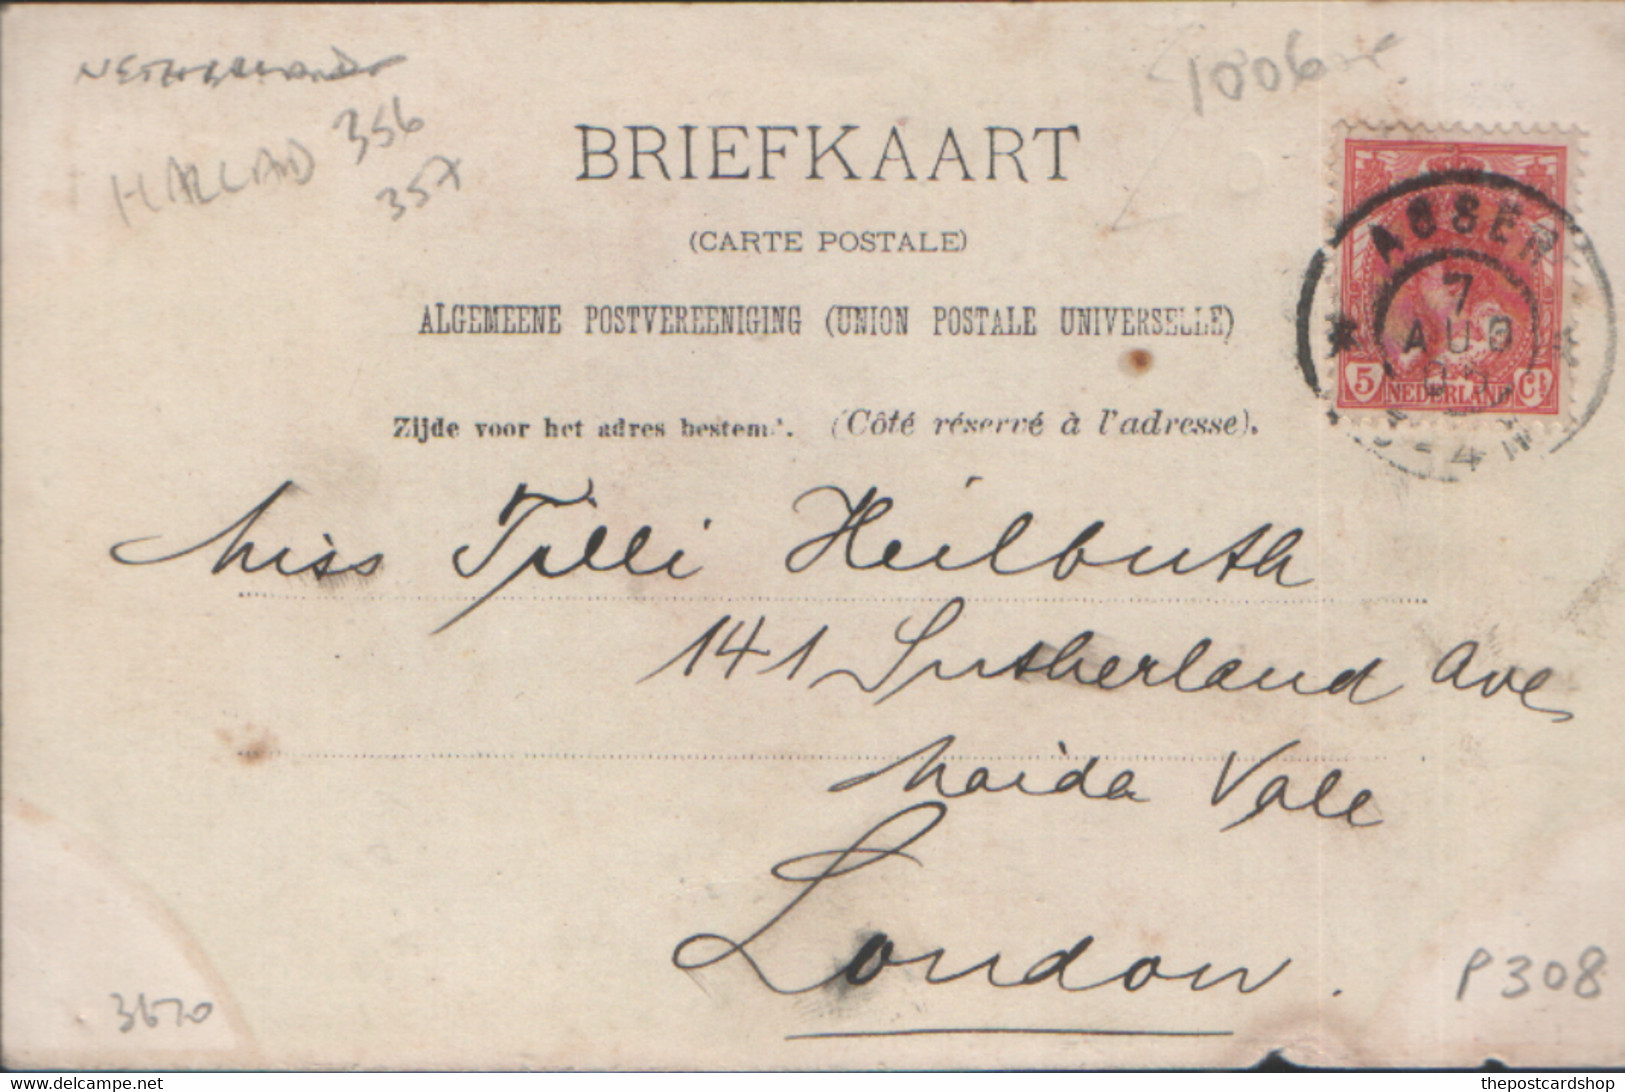 NETHERLANDS
1006
HALLAND 356
357
BRIEFKAART
(CARTE POSTALE)
ALGEMEENE POSTVEREENIGING (UNION POSTALE UNIVERSELLE)
Zijde voor het adres bestemd. (Côté réservé à l'adresse).
ASSEN
7
AUG
5 NEDERLAND Ct
Miss Tilli Heilbuth
141 Sutherland Ave
Maida Vale
London.
3670
P308
www.delcampe.net
thepostcardshop